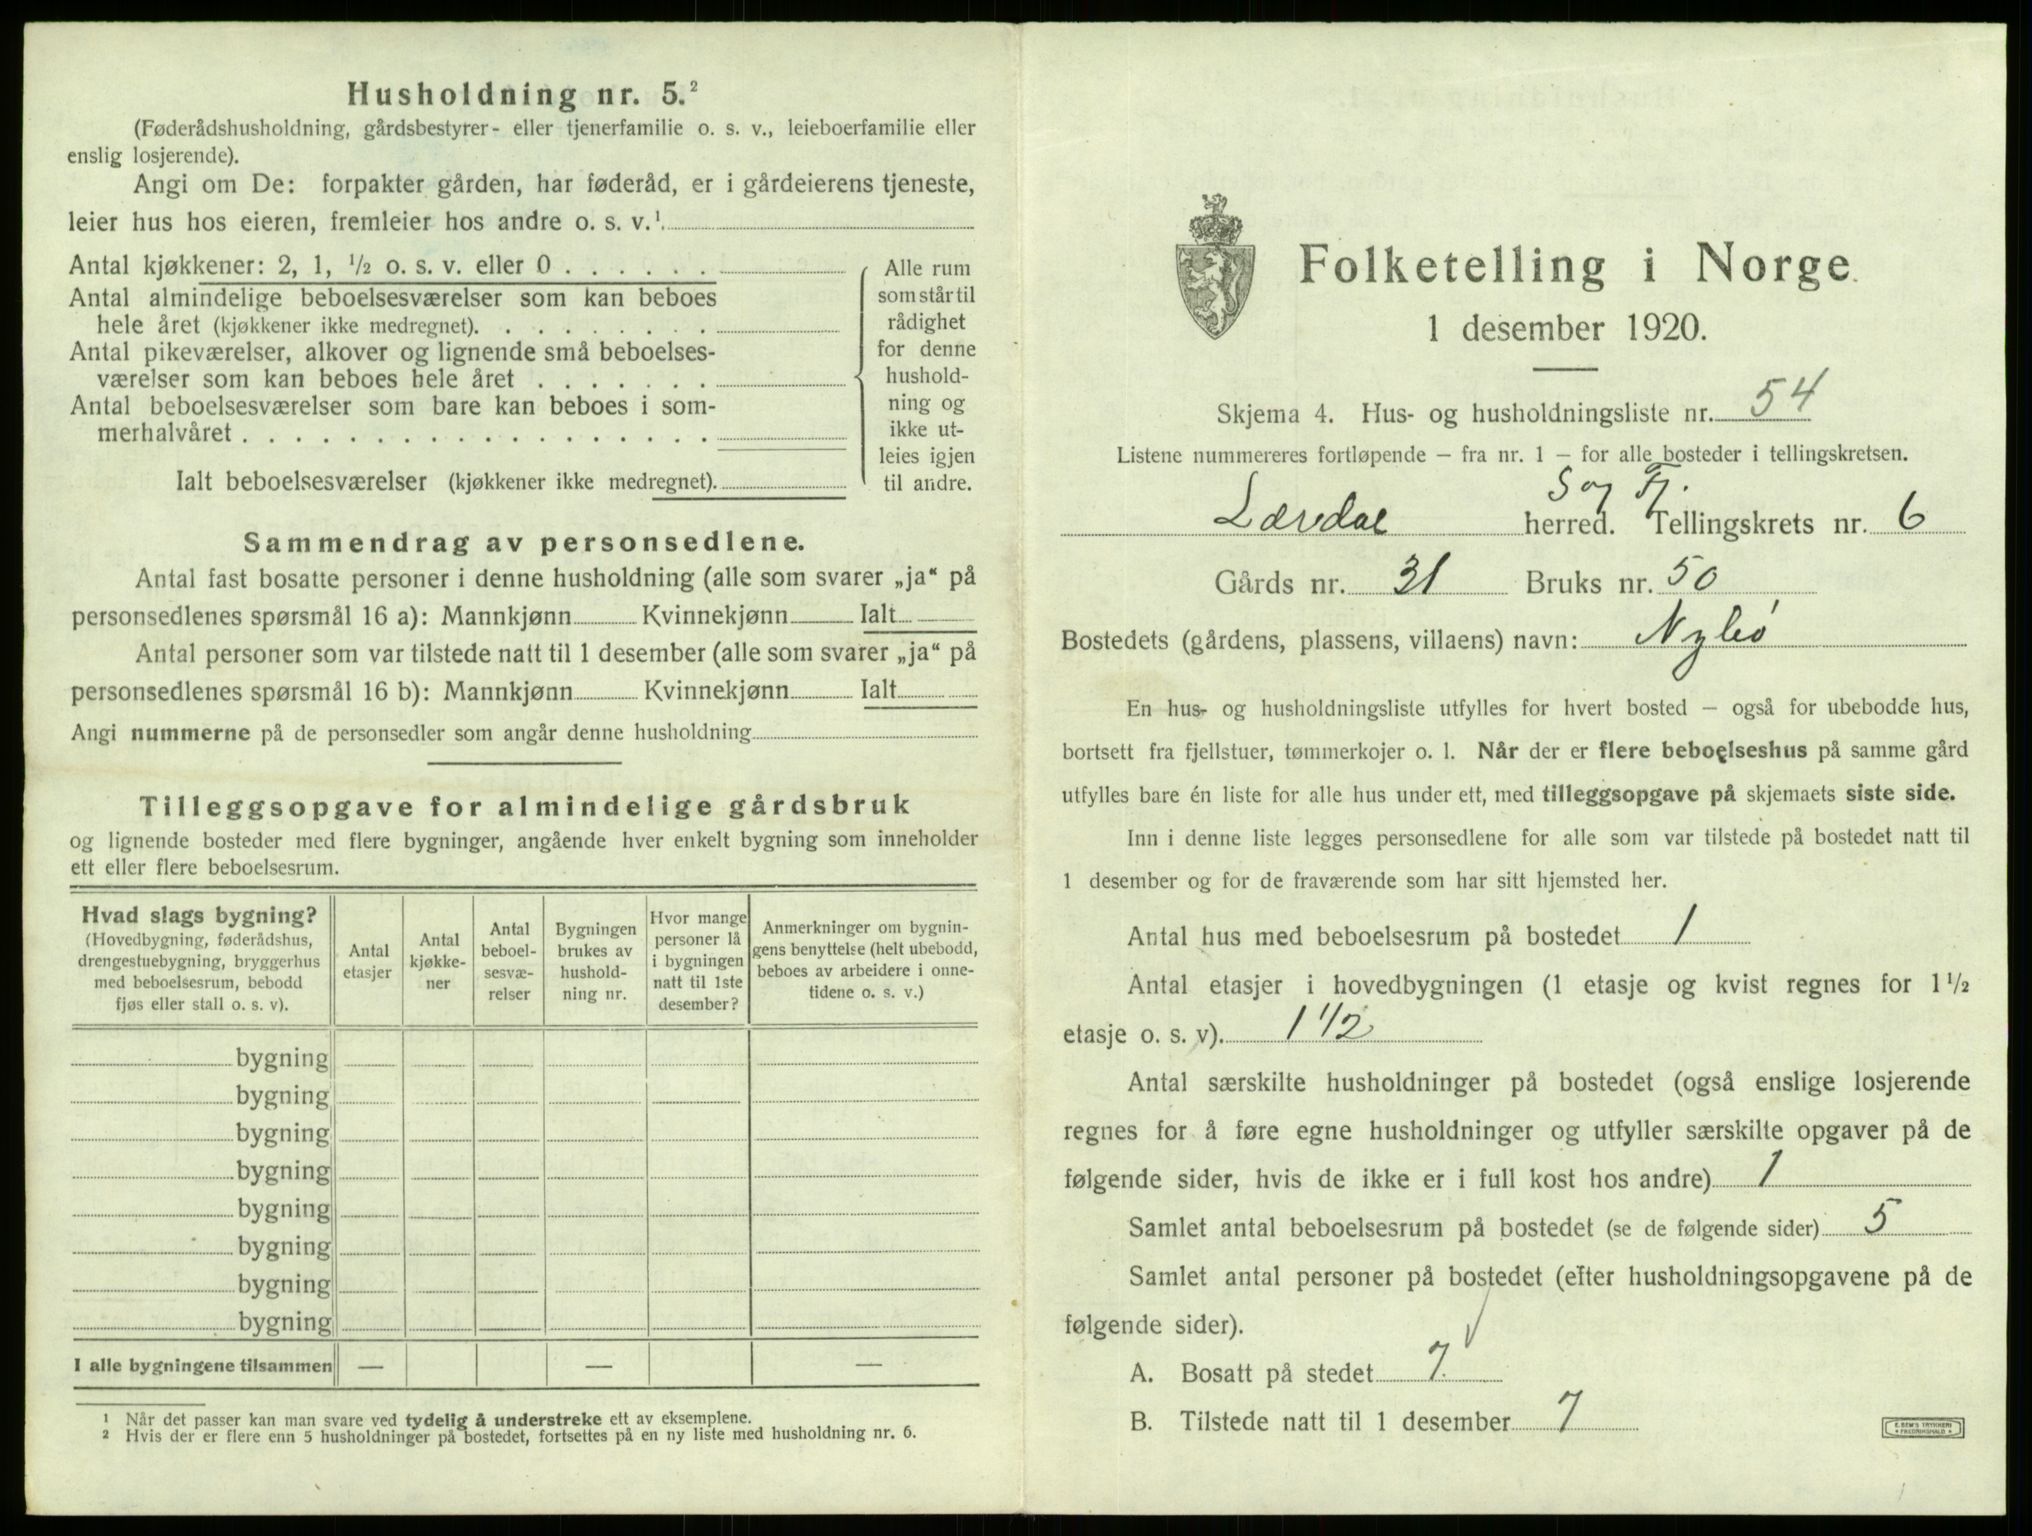 Husholdning nr. 5.²
(Føderådshusholdning, gårdsbestyrer- eller tjenerfamilie o. s. v., leieboerfamilie eller
enslig losjerende).
Angi om De: forpakter gården, har føderåd, er i gårdeierens tjeneste,
leier hus hos eieren, fremleier hos andre o. s. v.¹
Antal kjøkkener: 2, 1, ½ o. s. v. eller 0 . . . . . .
Antal almindelige beboelsesværelser som kan beboes
hele året (kjøkkener ikke medregnet). . . . . . . . .
Antal pikeværelser, alkover og lignende små beboelses-
værelser som kan beboes hele året . . . . . . .
Antal beboelsesværelser som bare kan beboes i som-
merhalvåret . . . . . . . . . . . . . . . . . .
Ialt beboelsesværelser (kjøkkener ikke medregnet).
Alle rum
som står til
rådighet
for denne
hushold-
ning og
ikke ut-
leies igjen
til andre.
Sammendrag av personsedlene.
Antal fast bosatte personer i denne husholdning (alle som svarer „ja“ på
personsedlenes spørsmål 16 a): Mannkjønn Kvinnekjønn Ialt
Antal personer som var tilstede natt til 1 desember (alle som svarer „ja“ på
personsedlenes spørsmål 16 b): Mannkjønn Kvinnekjønn Ialt
Angi nummerne på de personsedler som angår denne husholdning
Tilleggsopgave for almindelige gårdsbruk
og lignende bosteder med flere bygninger, angående hver enkelt bygning som inneholder
ett eller flere beboelsesrum.
Hvad slags bygning?
(Hovedbygning, føderådshus,
drengestuebygning, bryggerhus
med beboelsesrum, bebodd
fjøs eller stall o. s. v).
Antal
etasjer
Antal
kjøkke-
ner
Antal
beboel-
sesvæ-
relser
Bygningen
brukes av
hushold-
ning nr.
Hvor mange
personer lå
i bygningen
natt til 1ste
desember?
Anmerkninger om bygnin-
gens benyttelse (helt ubebodd,
beboes av arbeidere i onne-
tidene o. s. v.)
bygning
bygning
bygning
bygning
bygning
bygning
bygning
bygning
I alle bygningene tilsammen — — —
1 Når det passer kan man svare ved tydelig å understreke ett av eksemplene.
2 Hvis der er flere enn 5 husholdninger på bostedet, fortsettes på en ny liste med husholdning nr. 6.
Folketelling i Norge
1 desember 1920.
Skjema 4. Hus- og husholdningsliste nr. 54
Listene nummereres fortløpende – fra nr. 1 – for alle bosteder i tellingskretsen.
S og Fj.
Lærdal herred. Tellingskrets nr. 6
Gårds nr. 31 Bruks nr. 50
Bostedets (gårdens, plassens, villaens) navn: Nybø
En hus- og husholdningsliste utfylles for hvert bosted – også for ubebodde hus,
bortsett fra fjellstuer, tømmerkojer o. l. Når der er flere beboelseshus på samme gård
utfylles bare én liste for alle hus under ett, med tilleggsopgave på skjemaets siste side.
Inn i denne liste legges personsedlene for alle som var tilstede på bostedet natt til
1 desember og for de fraværende som har sitt hjemsted her.
Antal hus med beboelsesrum på bostedet 1
Antal etasjer i hovedbygningen (1 etasje og kvist regnes for 1½
etasje o. s. v). 1 1/2
Antal særskilte husholdninger på bostedet (også enslige losjerende
regnes for å føre egne husholdninger og utfyller særskilte opgaver på de
følgende sider, hvis de ikke er i full kost hos andre) 1
Samlet antal beboelsesrum på bostedet (se de følgende sider) 5
Samlet antal personer på bostedet (efter husholdningsopgavene på de
følgende sider).
A. Bosatt på stedet 7.
B. Tilstede natt til 1 desember 7
E. SEM'S TRYKKERI
FREDRIKSHALD